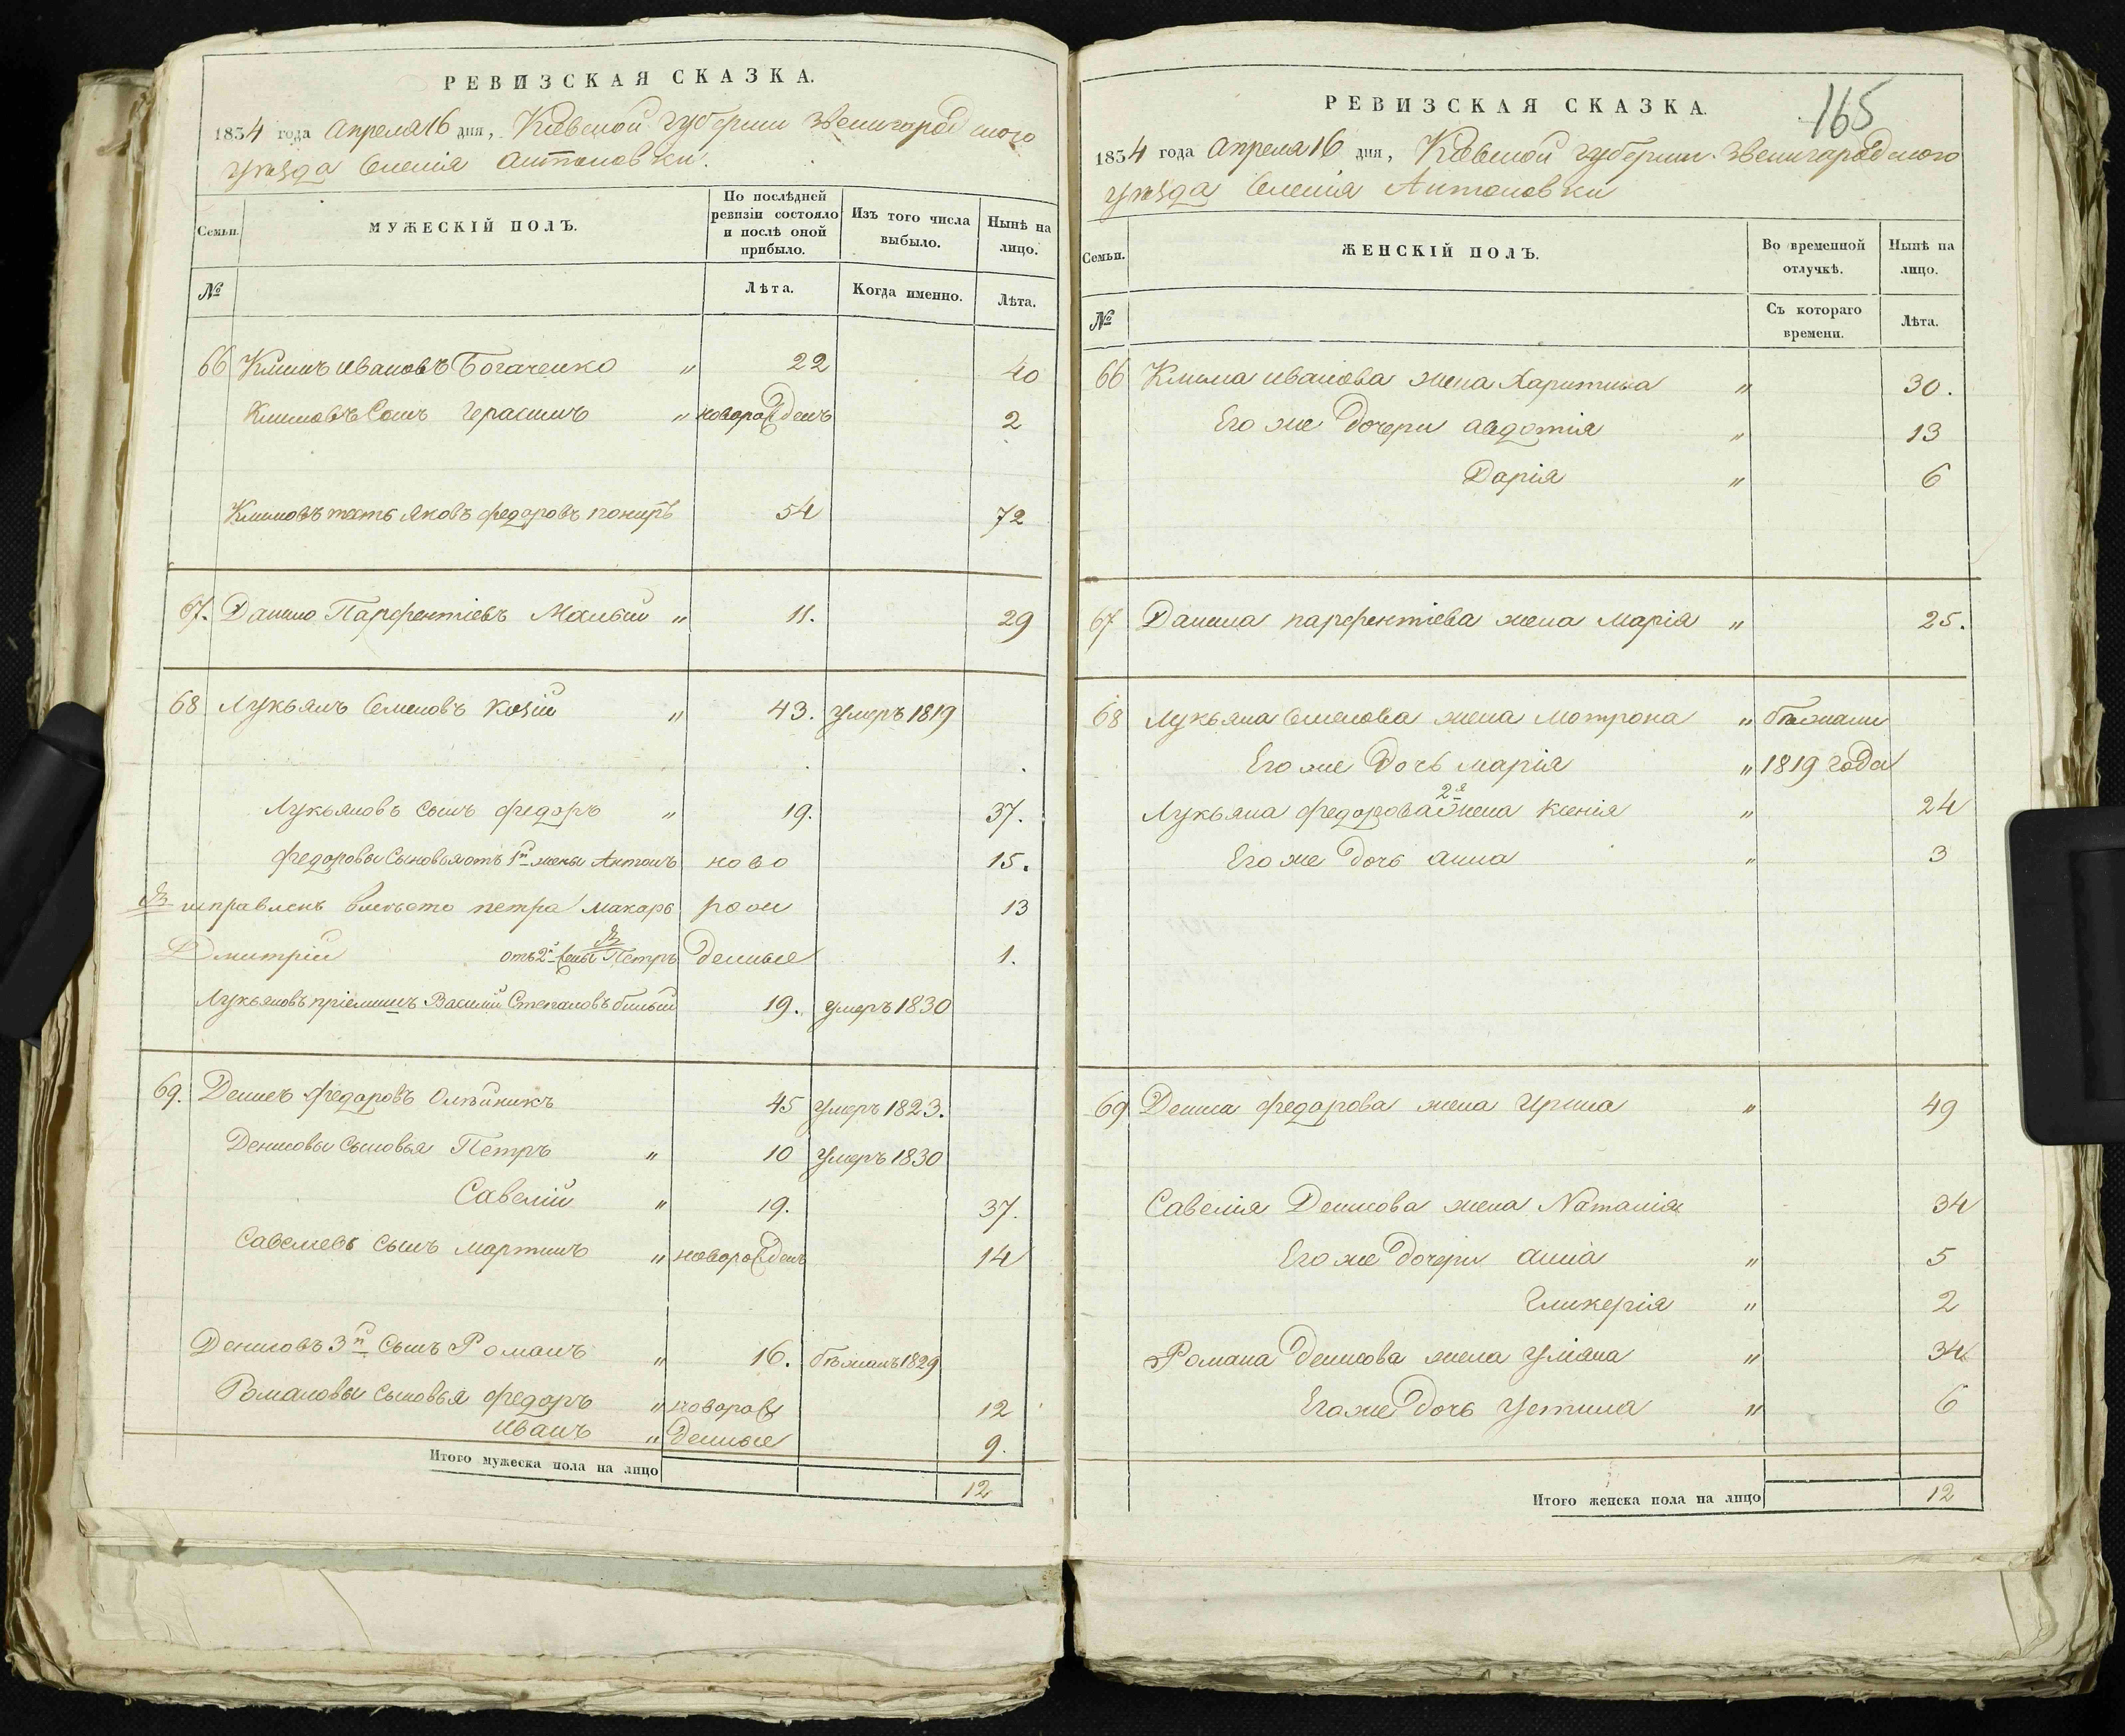 РЕВИЗСКАЯ СКАЗКА.
1834 года Апреля 16 дня, Кіевской губерніи Звенигородского
уѣзда Сѣленія Антоновки.
Семьи.
МУЖЕСКІЙ ПОЛЪ.
По послѣдней ревизіи состояло и послѣ оной прибыло.
Изъ того числа выбыло.
Нынѣ на лицо.
№
Лѣта.
Когда именно.
Лѣта.
66 Климъ Ивановъ Богаченко " 22 40
Климовъ Сынъ Герасимъ " новорожденъ 2
Климовъ тесть Яковъ Федоровъ 54 72
67. Данило Парфентіевъ Малый " 11. 29
68 Лукьянъ Семеновъ Козій " 43. умеръ 1819
Лукьяновъ сынъ Федоръ " 19. 37.
Федоровы Сыновья отъ 1й жены Антонъ ново 15.
исправленъ вместо петра Макаръ рож 13
Дмитрій отъ 2й жены Петръ денные 1.
Лукьяновъ пріемышъ Василий Степановъ билый 19. умеръ 1830
69. Денисъ Федоровъ Олѣйникъ 45 умеръ 1823.
Денисовы Сыновья Петръ " 10 умеръ 1830
Савелій " 19. 37.
Савелиевъ Сынъ Мартинъ " новорожденъ 14
Денисовъ 3й Сынъ Романъ " 16. бѣжалъ 1829
Романовы Сыновья Федоръ " новорож 12
Иванъ " денные 9.
Итого мужеска пола на лицо 12
165
РЕВИЗСКАЯ СКАЗКА.
1834 года Апреля 16 дня, Кіевской губерніи Звенигородского
уѣзда Сѣленія Антоновки
Семьи.
ЖЕНСКІЙ ПОЛЪ.
Во временной отлучкѣ.
Нынѣ на лицо.
№
Съ котораго времени.
Лѣта.
66 Клима Иванова жена Харитина " 30.
Его же Дочери Авдотія " 13
Дарія " 6
67 Данила парфентіева жена Марія " 25.
68 Лукьяна Семенова жена Мотрона " бѣжали
Его же Дочь Марія " 1819 года
Лукьяна Федорова 2я жена Ксенія " 24
Его же Дочь Анна " 3
69 Дениса Федорова жена Ирина " 49
Савелія Денисова жена Наталія 34
Его же Дочери Анна " 5
Гликерія " 2
Романа Денисова жена Уліяна " 34
Его же Дочь Устина " 6
Итого женска пола на лицо 12